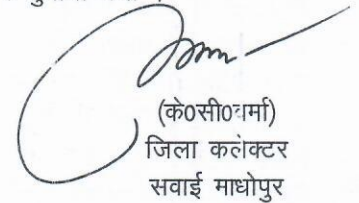 (के0सी0वर्मा)
जिला कलेक्टर
सवाई माधोपुर